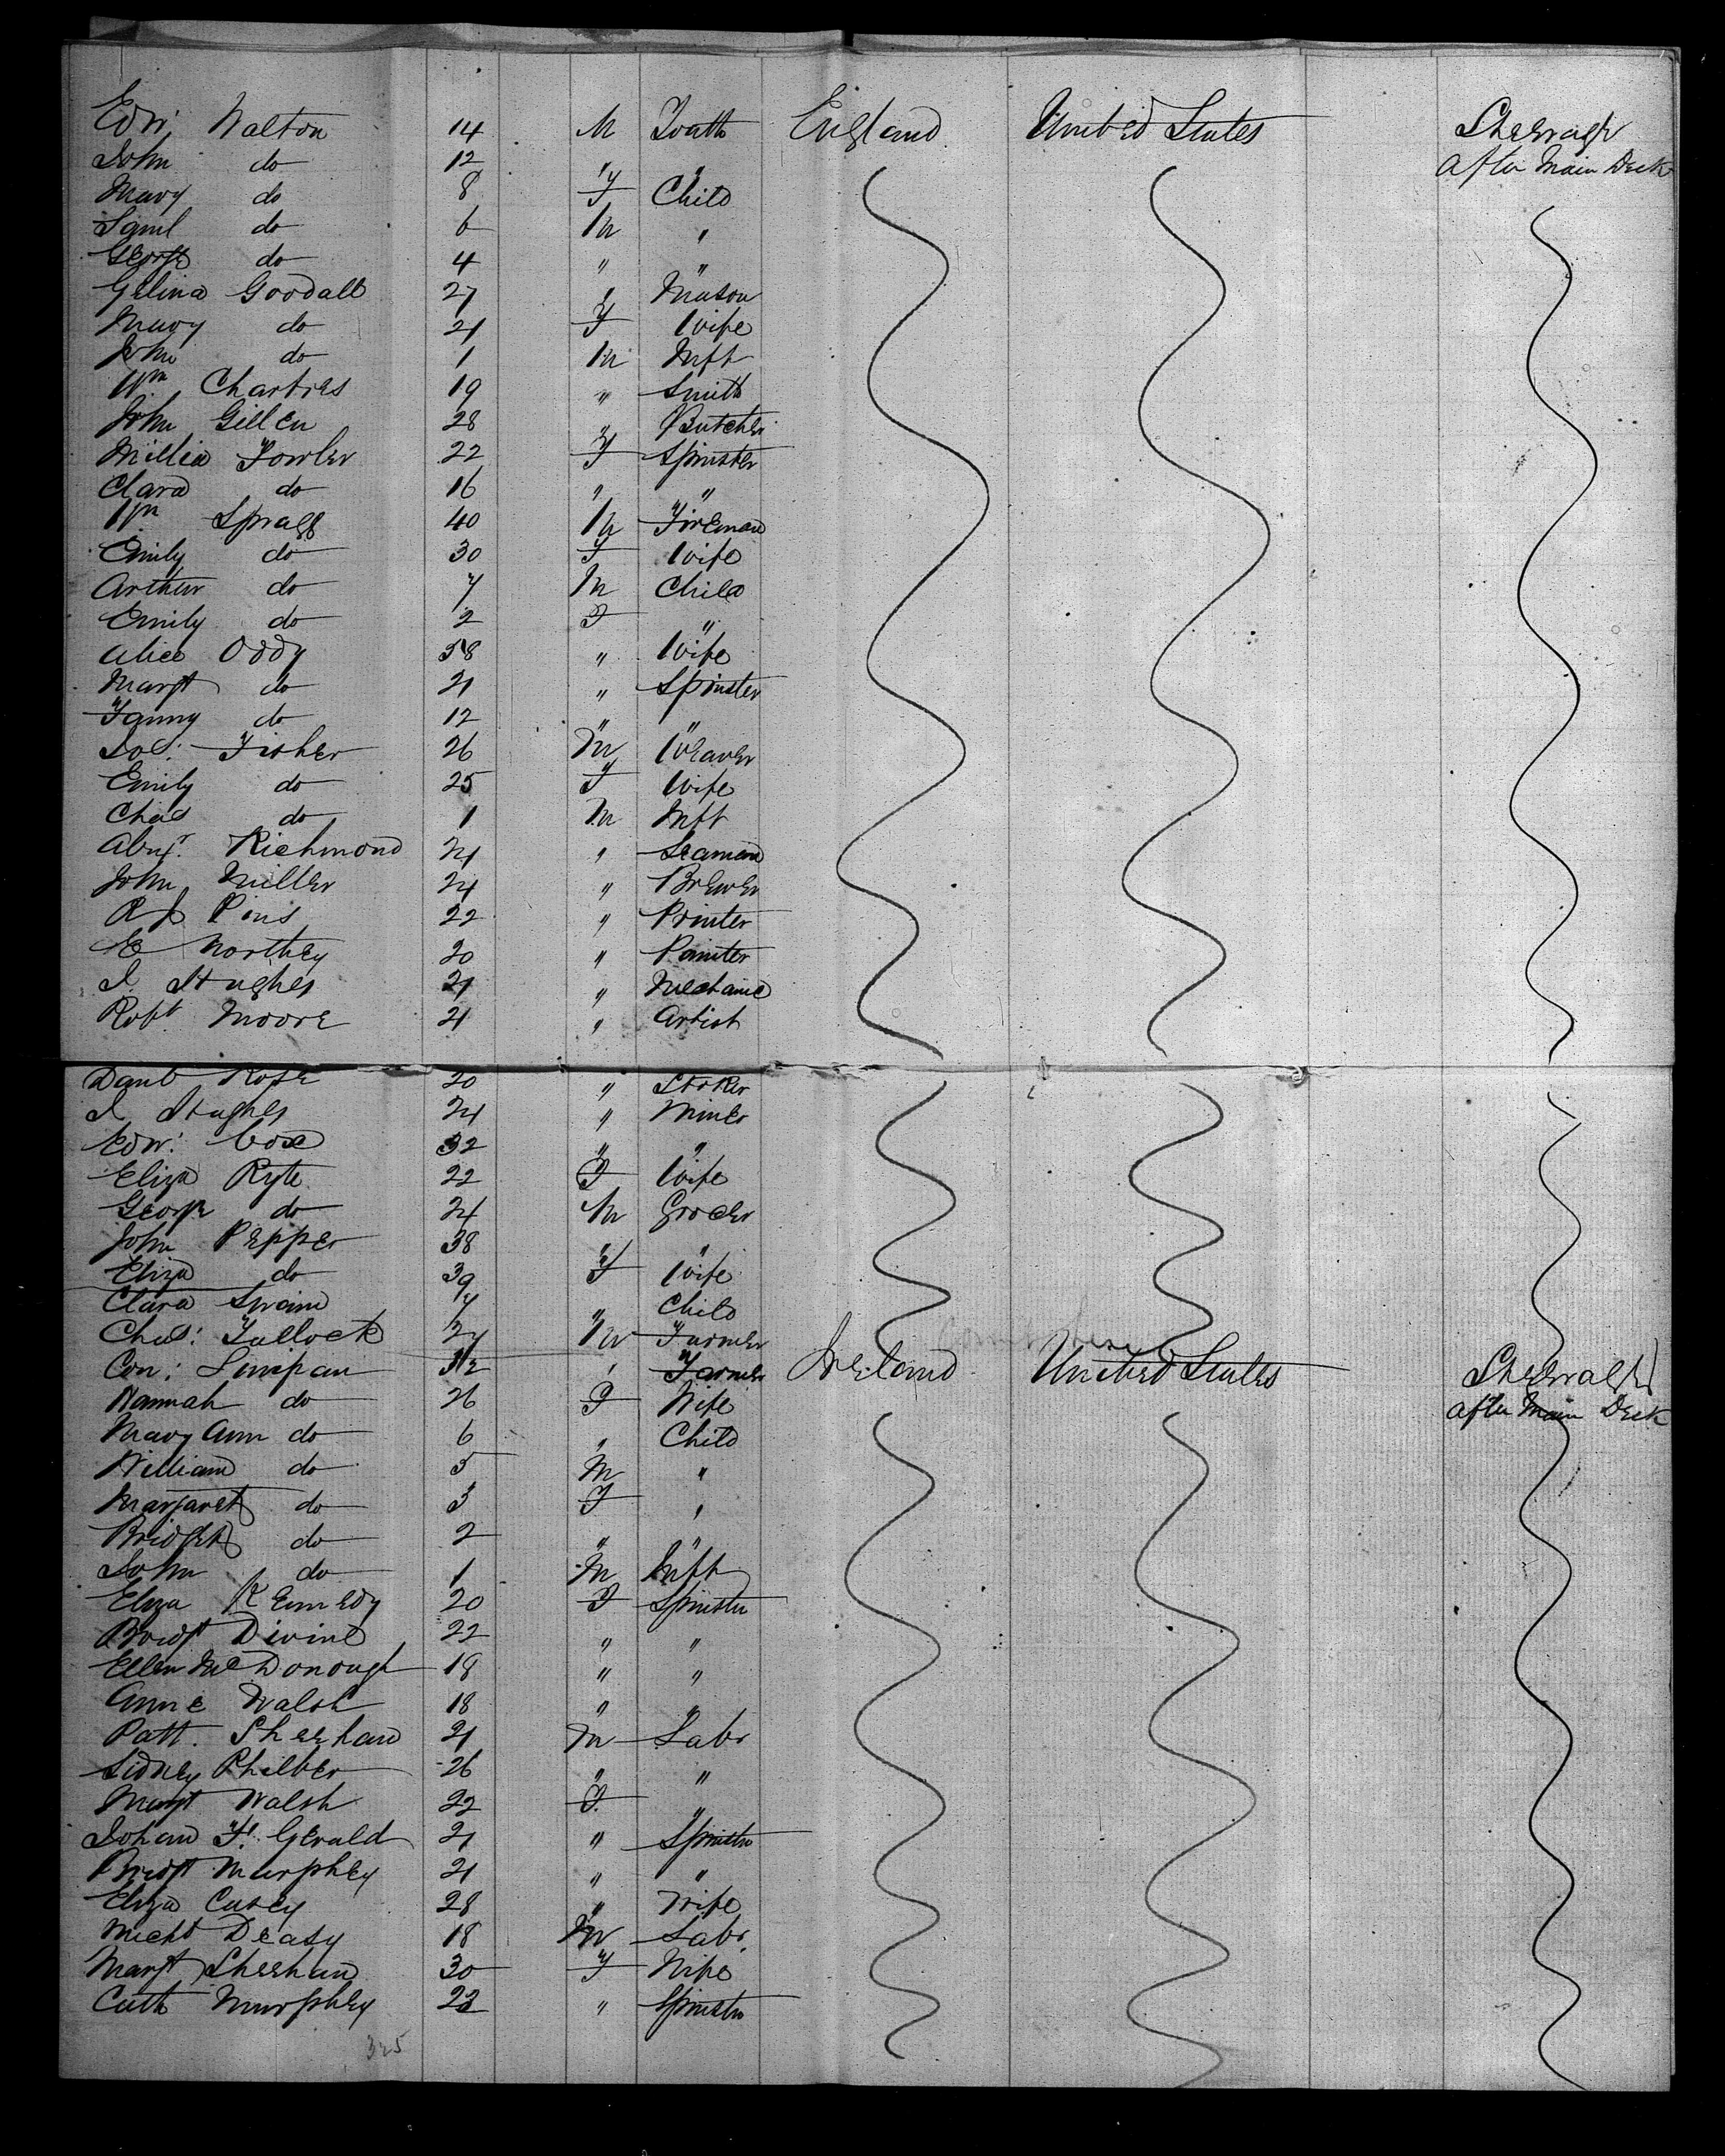 Edw. Walton 14 M Youth England United States Steerage
John do 12 " " After Main Deck
Mary do 8 F Child
Saml do 6 M "
George do 4 " "
Gelina Goodall 27 " Mason
Mary do 21 F Wife
John do 1 M Inft
Wm Chartres 19 " Smith
John Gillen 28 " Butcher
Millia Fowler 22 F Spinster
Clara do 16 " "
Wm Spragg 40 M Fireman
Emily do 30 F Wife
Arthur do 7 M Child
Emily do 2 F "
Alice Oddy 58 " Wife
Margt do 21 " Spinster
Fanny do 12 " "
Jos: Fisher 26 M Weaver
Emily do 25 F Wife
Chas do 1 M Inft
Alexr. Richmond 24 " Seaman
John Miller 24 " Brewer
R J Pins 22 " Printer
E Northey 20 " Painter
J. Hughes 21 " Mechanic
Robt Moore 21 " Artist
Danl Rose 20 " Stoker
J. Hughes 24 " Miner
Edw: Cox 32 " "
Eliza Ryte 22 F Wife
George do 24 M Grocer
John Pepper 38 " "
Eliza do 39 F Wife
Clara Spain 7 " Child
Chas: Tullock 24 M Farmer
Con: Linipan 32 " Farmer Ireland United States Steerage
Hannah do 26 F Wife After Main Deck
Mary Ann do 6 " Child
William do 5 M "
Margaret do 3 F "
Bridget do 2 " "
John do 1 M Inft
Eliza Kennedy 20 F Spinster
Bridgt Divine 22 " "
Ellen McDonough 18 " "
Anne Walsh 18 " "
Patt. Sheehan 21 M Labr
Sidney Philber 26 " "
Margt Walsh 22 F. "
Johan F. Gerald 21 " Spinster
Bridgt Murphey 21 " "
Eliza Casey 28 " Wife
Michl Deasy 18 M Labr.
Margt Sheehan 30 F Wife
Cath Murphey 22 " Spinster
325